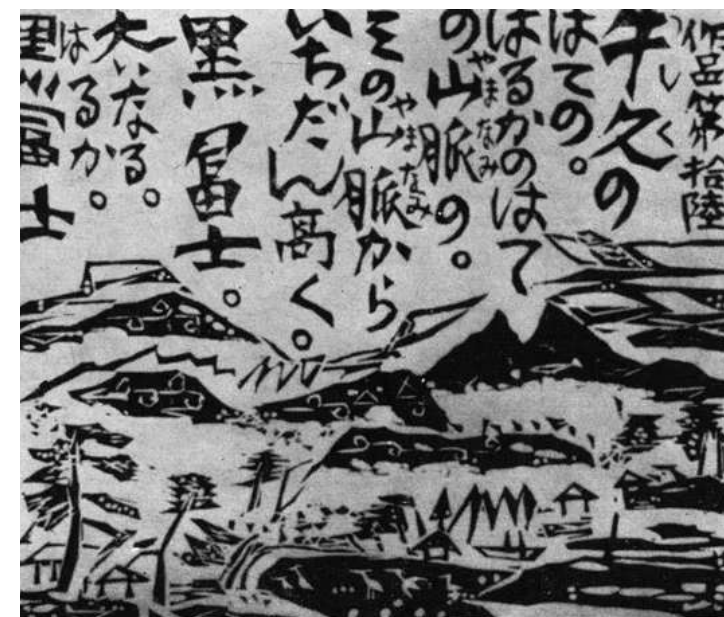 作品第拾陸
うしく
牛久の
はての。
はるかのはて
やまなみ
の山脈の。
やまなみ
その山脈から
いちだん高く。
黒富士。
大いなる。
はるか。
黒富士